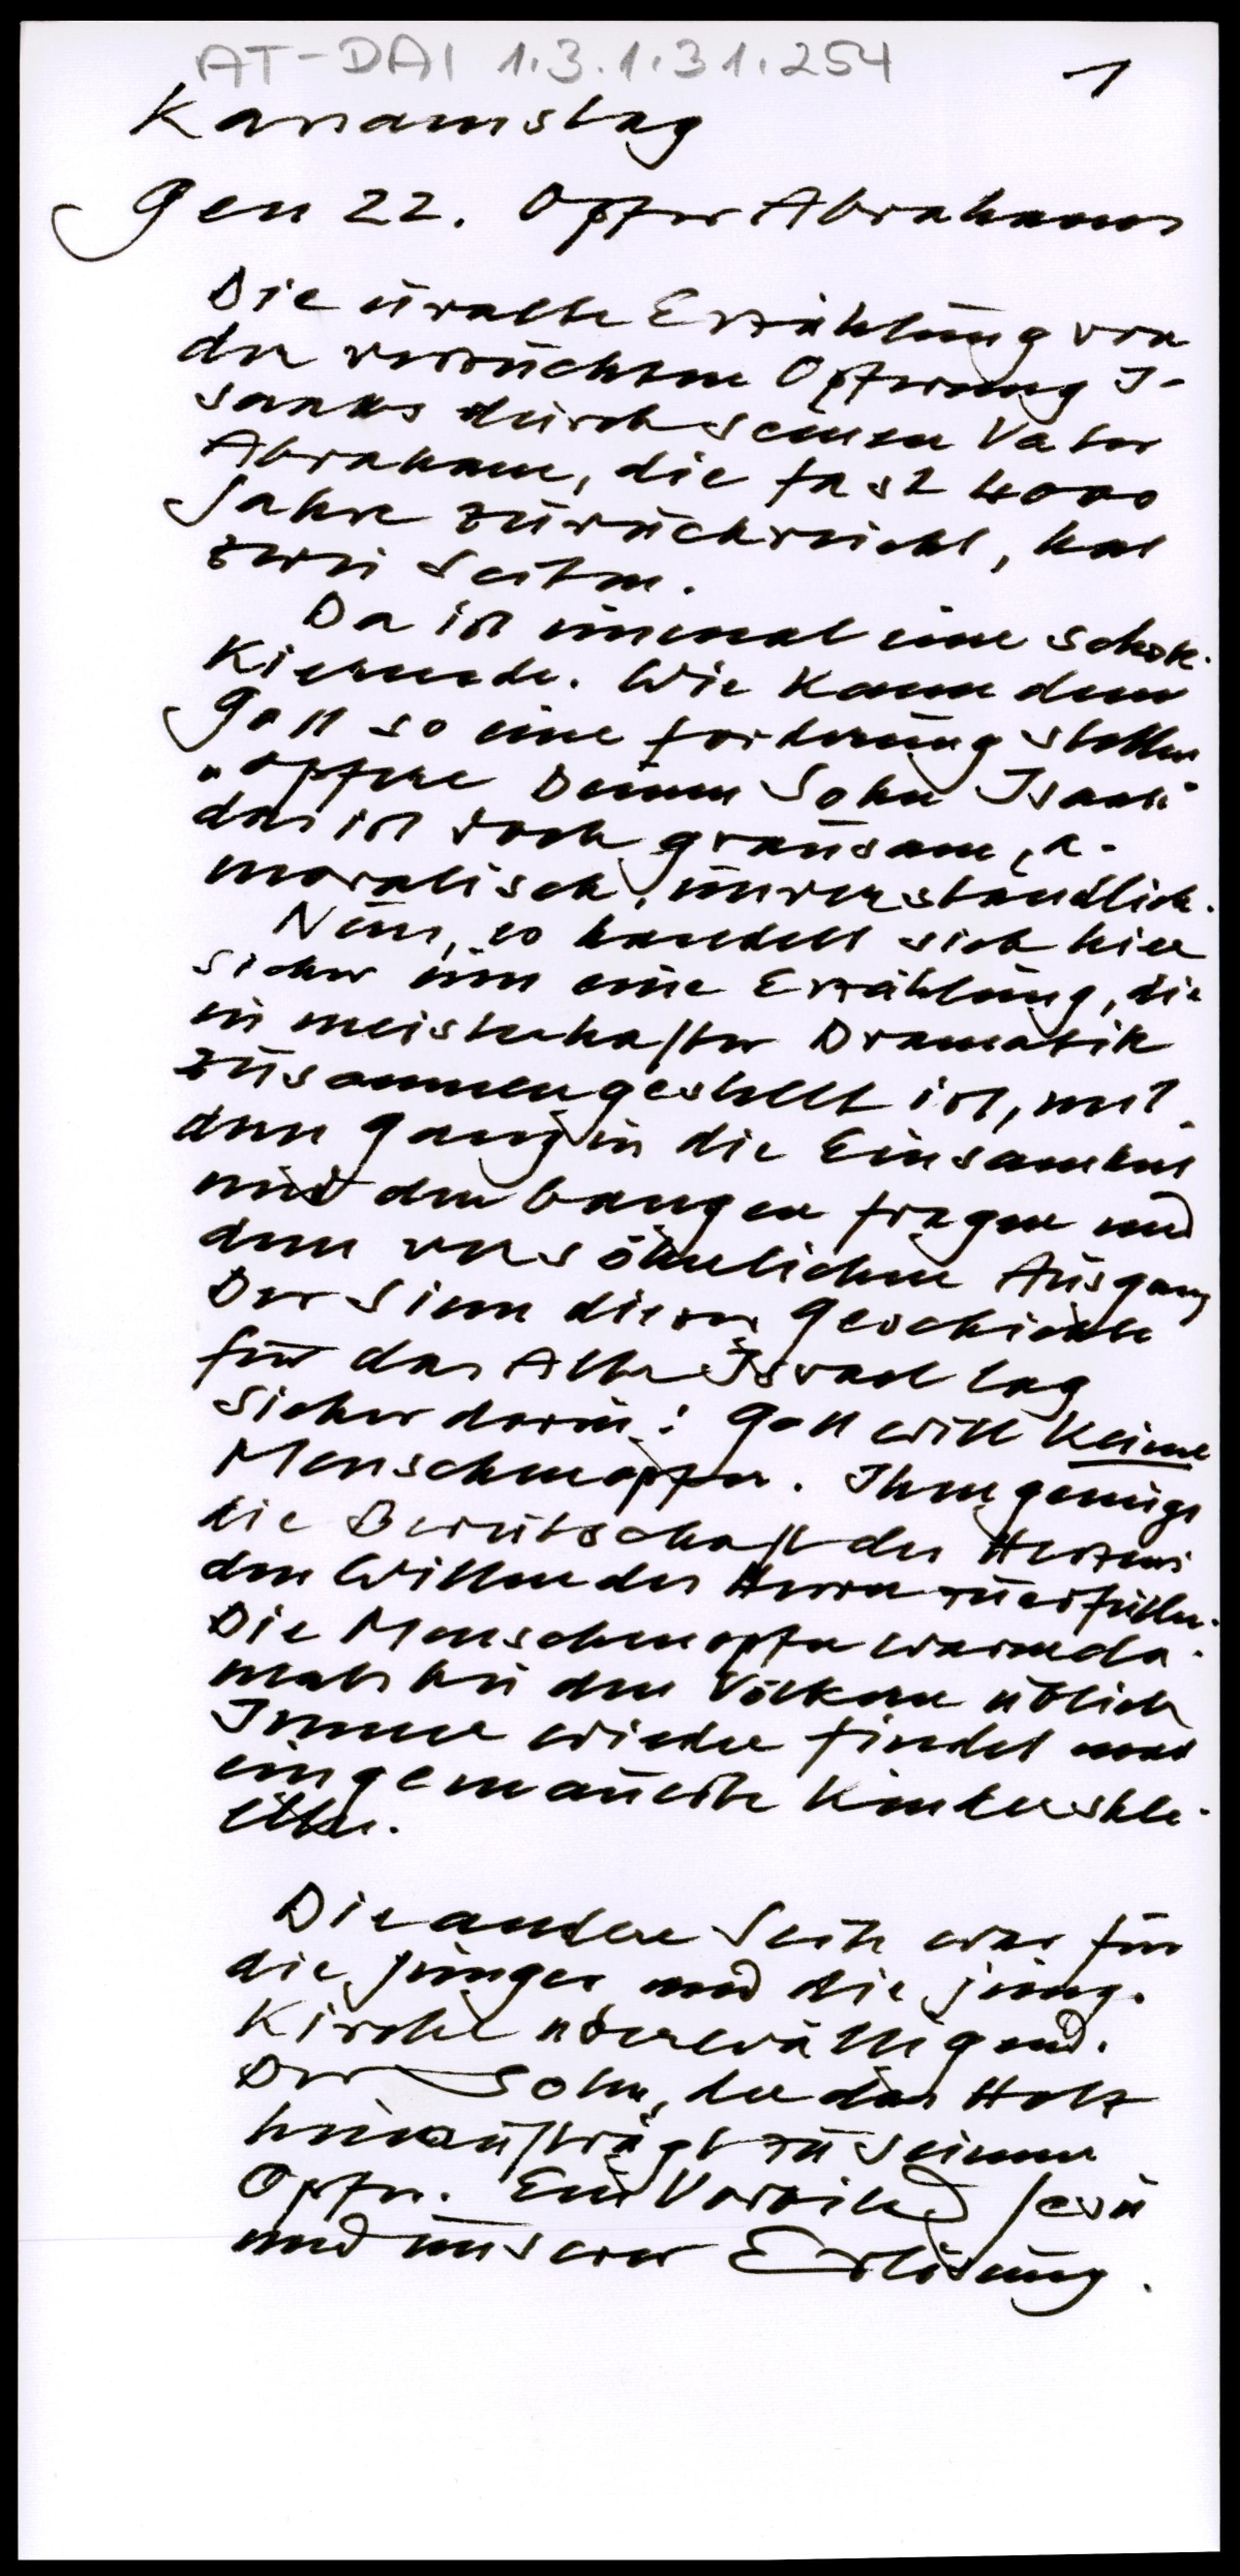 AT-DAI 1.3.1.31.254
1
Karsamstag
Gen 22. Opfer Abrahams
Die uralte Erzählung von
der versuchten Opferung I-
saaks durch seinen Vater
Abraham, die fast 4000
Jahre zurückreicht, hat
zwei Seiten.
Da ist einmal eine schok-
kierende. Wie kann denn
Gott so eine Forderung stellen
"opfere Deinen Sohn Isaak"
das ist doch grausam, a-
moralisch, unverständlich.
Nun, es handelt sich hier
sicher um eine Erzählung, die
in meisterhafter Dramatik
zusammengestellt ist, mit
dem Gang in die Einsamkeit
und den bangen Fragen und
dem versöhnlichen Ausgang
Der Sinn dieser Geschichte
für das Alte Israel lag
sicher darin: Gott will keine
Menschenopfer. Ihm genügt
die Bereitschaft des Herzens
den Willen des Herrn zu erfüllen.
Die Menschenopfer waren da-
mals bei den Völkern üblich
Immer wieder findet man
eingemauerte Kinderske-
lette.
Die andere Seite war für
die Jünger und die junge
Kirche überwältigend.
Der Sohn, der das Holz
hinaufträgt zu seinem
Opfer. Ein Vorbild Jesu
und unserer Erlösung.